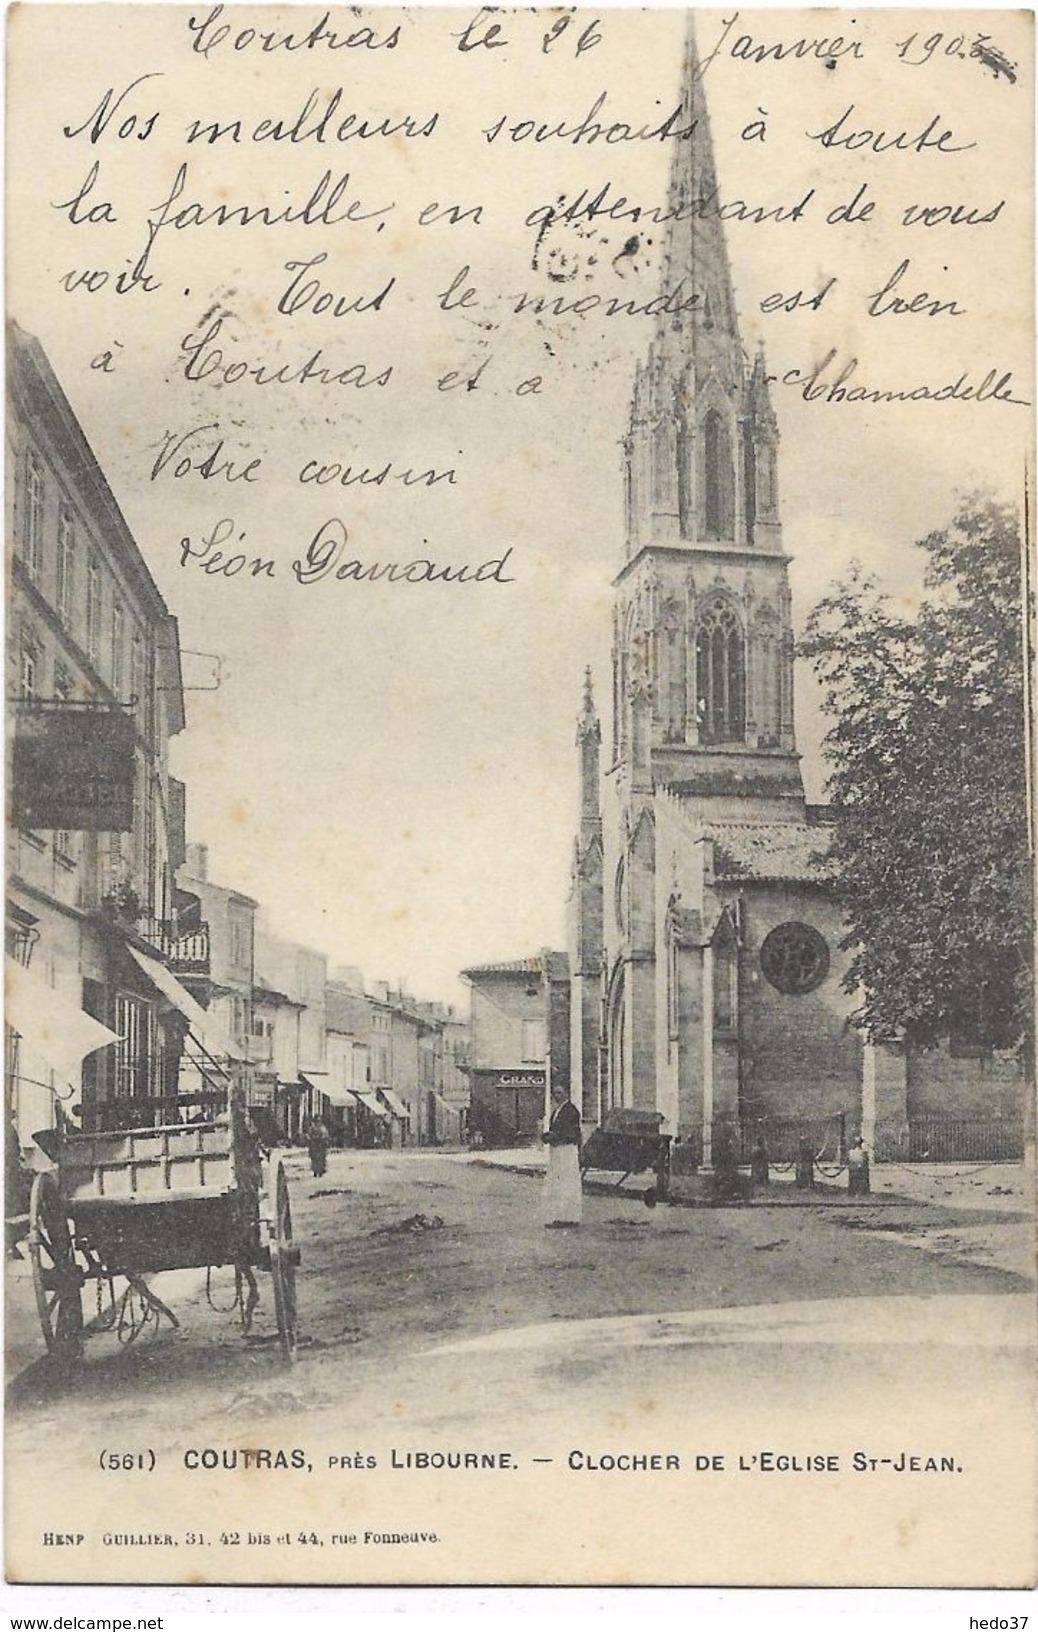 Coutras le 26 Janvier
Nos meilleurs souhaits à toute
la famille, en attendant de vous
voir. Tout le monde est bien
à Coutras et a Chamadelle
Votre cousin
Léon
GRAND
(561) COUTRAS, PRÈS LIBOURNE. — CLOCHER DE L'EGLISE ST-JEAN.
GUILLIER, 31, 42 bis et 44, rue Fonneuve.
www.delcampe.net
hedo37